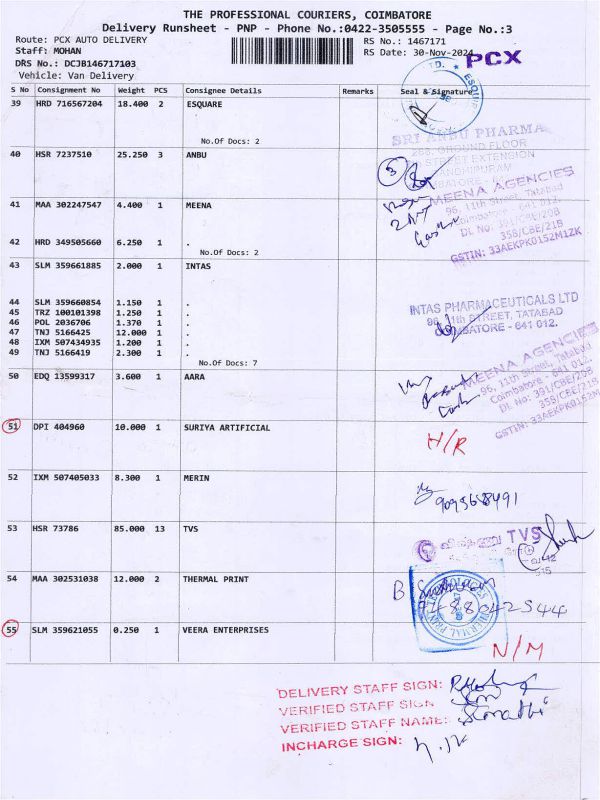 THE PROFESSIONAL COURIERS, COIMBATORE
Delivery Runsheet - PNP - Phone No.:0422-3505555 - Page No.:3
Route: PCX AUTO DELIVERY
RS No.: 1467171
Staff: MOHAN
RS Date: 30-Nov-2024
PCX
DRS No.: DCJB146717103
Vehicle: Van Delivery
S No Consignment No Weight PCS Consignee Details Remarks Seal & Signature
39 HRD 716567204 18.400 2 ESQUARE
No.Of Docs: 2
SRI ANBU PHARMA
288, GROUND FLOOR
STREET EXTENSION
40 HSR 7237510 25.250 3 ANBU
5
MEENA AGENCIES
96, 11th Street, Tatabad
Coimbatore - 641 012.
DL No: 391/CBE/20B
358/CBE/21B
GSTIN: 33AEKPK0152M1ZK
41 MAA 302247547 4.400 1 MEENA
42 HRD 349505660 6.250 1 .
No.Of Docs: 2
43 SLM 359661885 2.000 1 INTAS
44 SLM 359660854 1.150 1 .
45 TRZ 100101398 1.250 1 .
46 POL 2036706 1.370 1 .
47 TNJ 5166425 12.000 1 .
48 IXM 507434935 1.200 1 .
49 TNJ 5166419 2.300 1 .
No.Of Docs: 7
INTAS PHARMACEUTICALS LTD
96, 11th STREET, TATABAD
COIMBATORE - 641 012.
50 EDQ 13599317 3.600 1 AARA
MEENA AGENCIES
96, 11th Street, Tatabad
Coimbatore - 641 012.
DL No: 391/CBE/20B
358/CBE/21B
GSTIN: 33AEKPK0152M
51 DPI 404960 10.000 1 SURIYA ARTIFICIAL
H/R
52 IXM 507405033 8.300 1 MERIN
9095658491
53 HSR 73786 85.000 13 TVS
TVS
54 MAA 302531038 12.000 2 THERMAL PRINT
B
THERMAL PRINT
55 SLM 359621055 0.250 1 VEERA ENTERPRISES
N/M
DELIVERY STAFF SIGN:
VERIFIED STAFF SIGN
VERIFIED STAFF NAME:
INCHARGE SIGN: